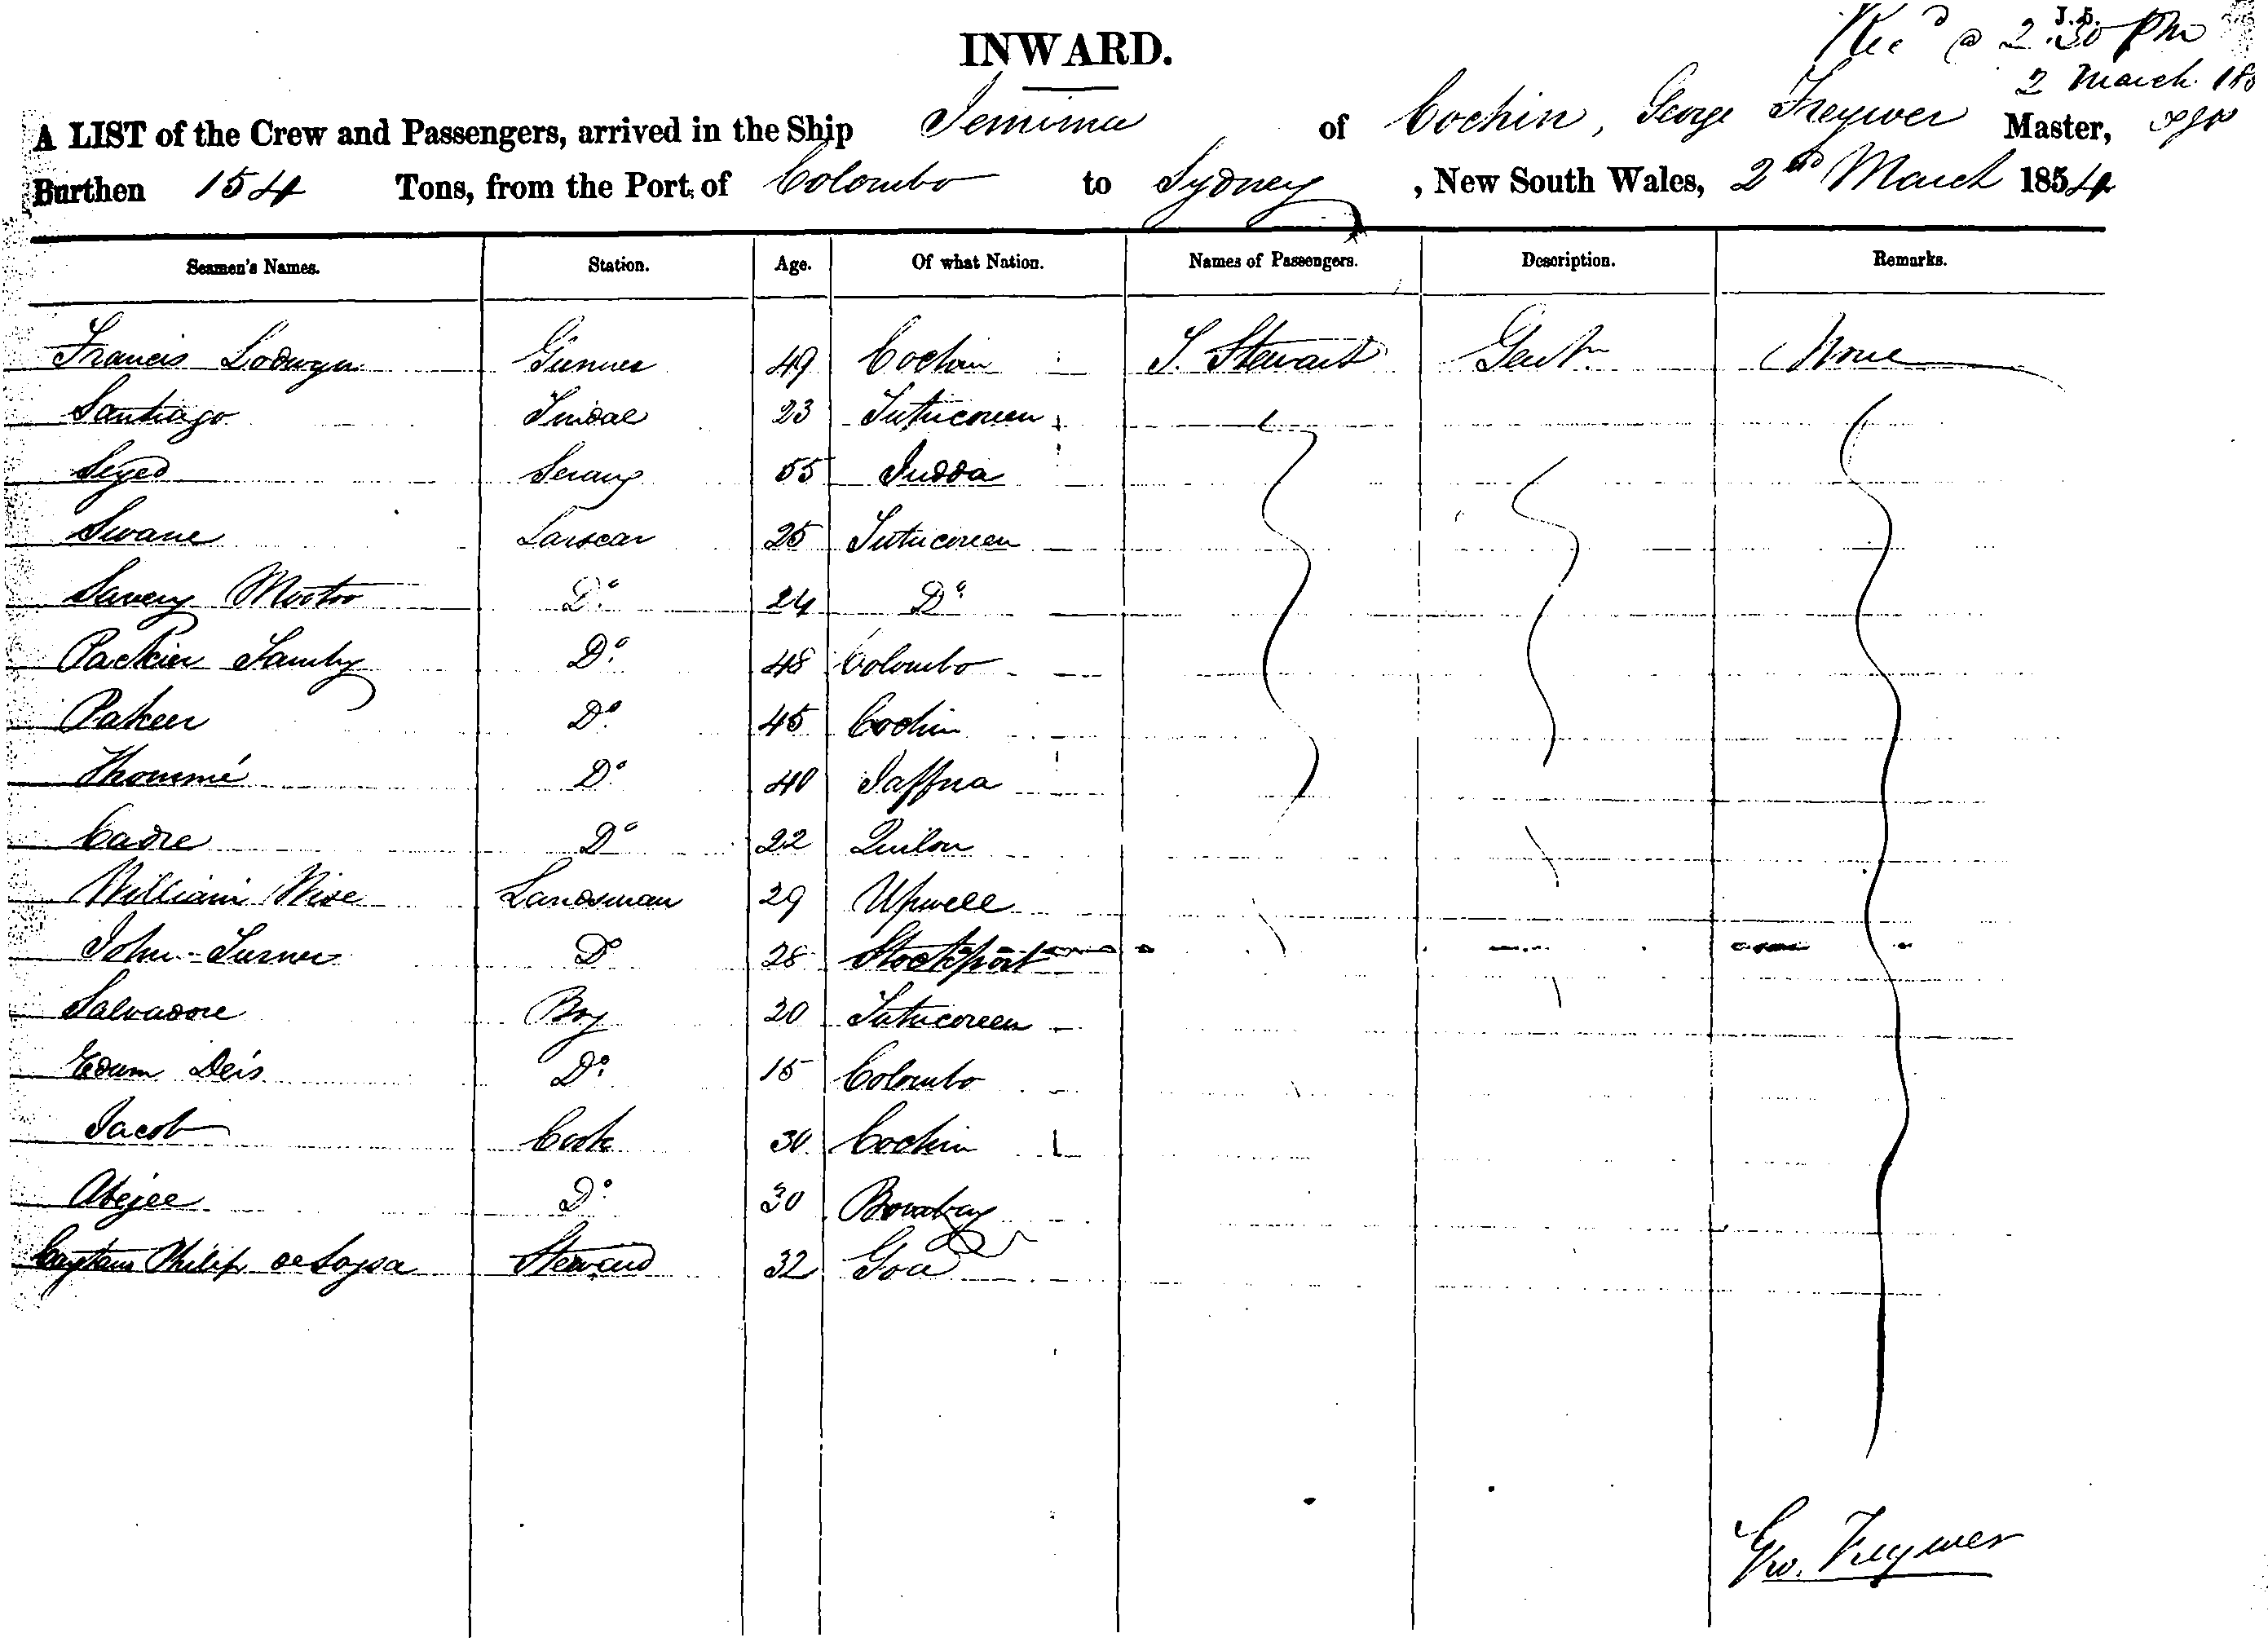 J.S.
Rec'd @ 2.30 PM
2 March 185
INWARD.
A LIST of the Crew and Passengers, arrived in the Ship Jemima of Cochin, George Freywer Master,
Burthen 154 Tons, from the Port of Colombo to Sydney, New South Wales, 2nd March 1854
Seamen's Names. Station. Age. Of what Nation. Names of Passengers. Description. Remarks.
Francis Lodwyn Gunner 49 Cochin S. Stewart Gent. None
Santiago Tindal 23 Tutucoreen
Seyed Serang 55 Judda
Swane Larscar 25 Tutucoreen
Savery Mootoo Do. 24 Do.
Packier Tamby Do. 48 Colombo
Pakeer Do. 45 Cochin
Thommé Do. 40 Jaffna
Cadre Do. 22 Quilon
William Wise Landsman 29 Upwell
John Turner Do 28 Stockport
Salvadore Boy 20 Tutucoreen
Edum Deis Do. 15 Colombo
Jacob Cook 30 Cochin
Abejee Do. 30 Bombay
Philip de Soysa Steward 32 Goa
Geo. Freywer